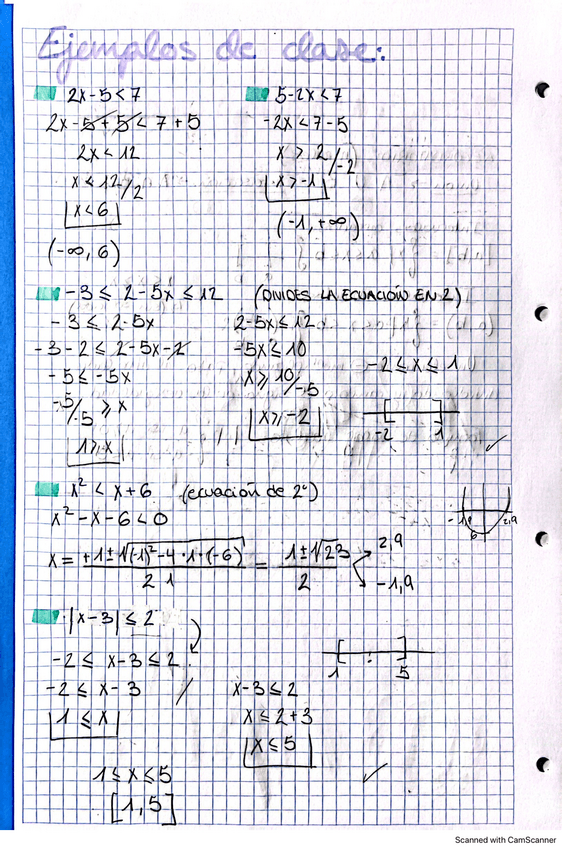 Ejemplos de clase:
2x-5<7
2x-5+5<7+5
2x<12
x<12/2
x<6
(-∞, 6)
5-2x<7
-2x<7-5
x>2/-2
x>-1
(-1, +∞)
-3≤2-5x≤12 (DIVIDES LA ECUACIÓN EN 2)
-3≤2-5x
-3-2≤2-5x-2
-5≤-5x
-5/-5≥x
1≥x
2-5x≤12
-5x≤10
x≥10/-5
x≥-2
-2≤x≤1
-2 1
x²<x+6 (ecuación de 2º)
x²-x-6<0
x = +1±√(-1)²-4·1·(-6) / 2·1 = 1±√23 / 2
2,9
-1,9
-1,9 2,9
6
|x-3|≤2
-2≤x-3≤2
-2≤x-3
1≤x
x-3≤2
x≤2+3
x≤5
1 5
1≤x≤5
[1,5]
Scanned with CamScanner